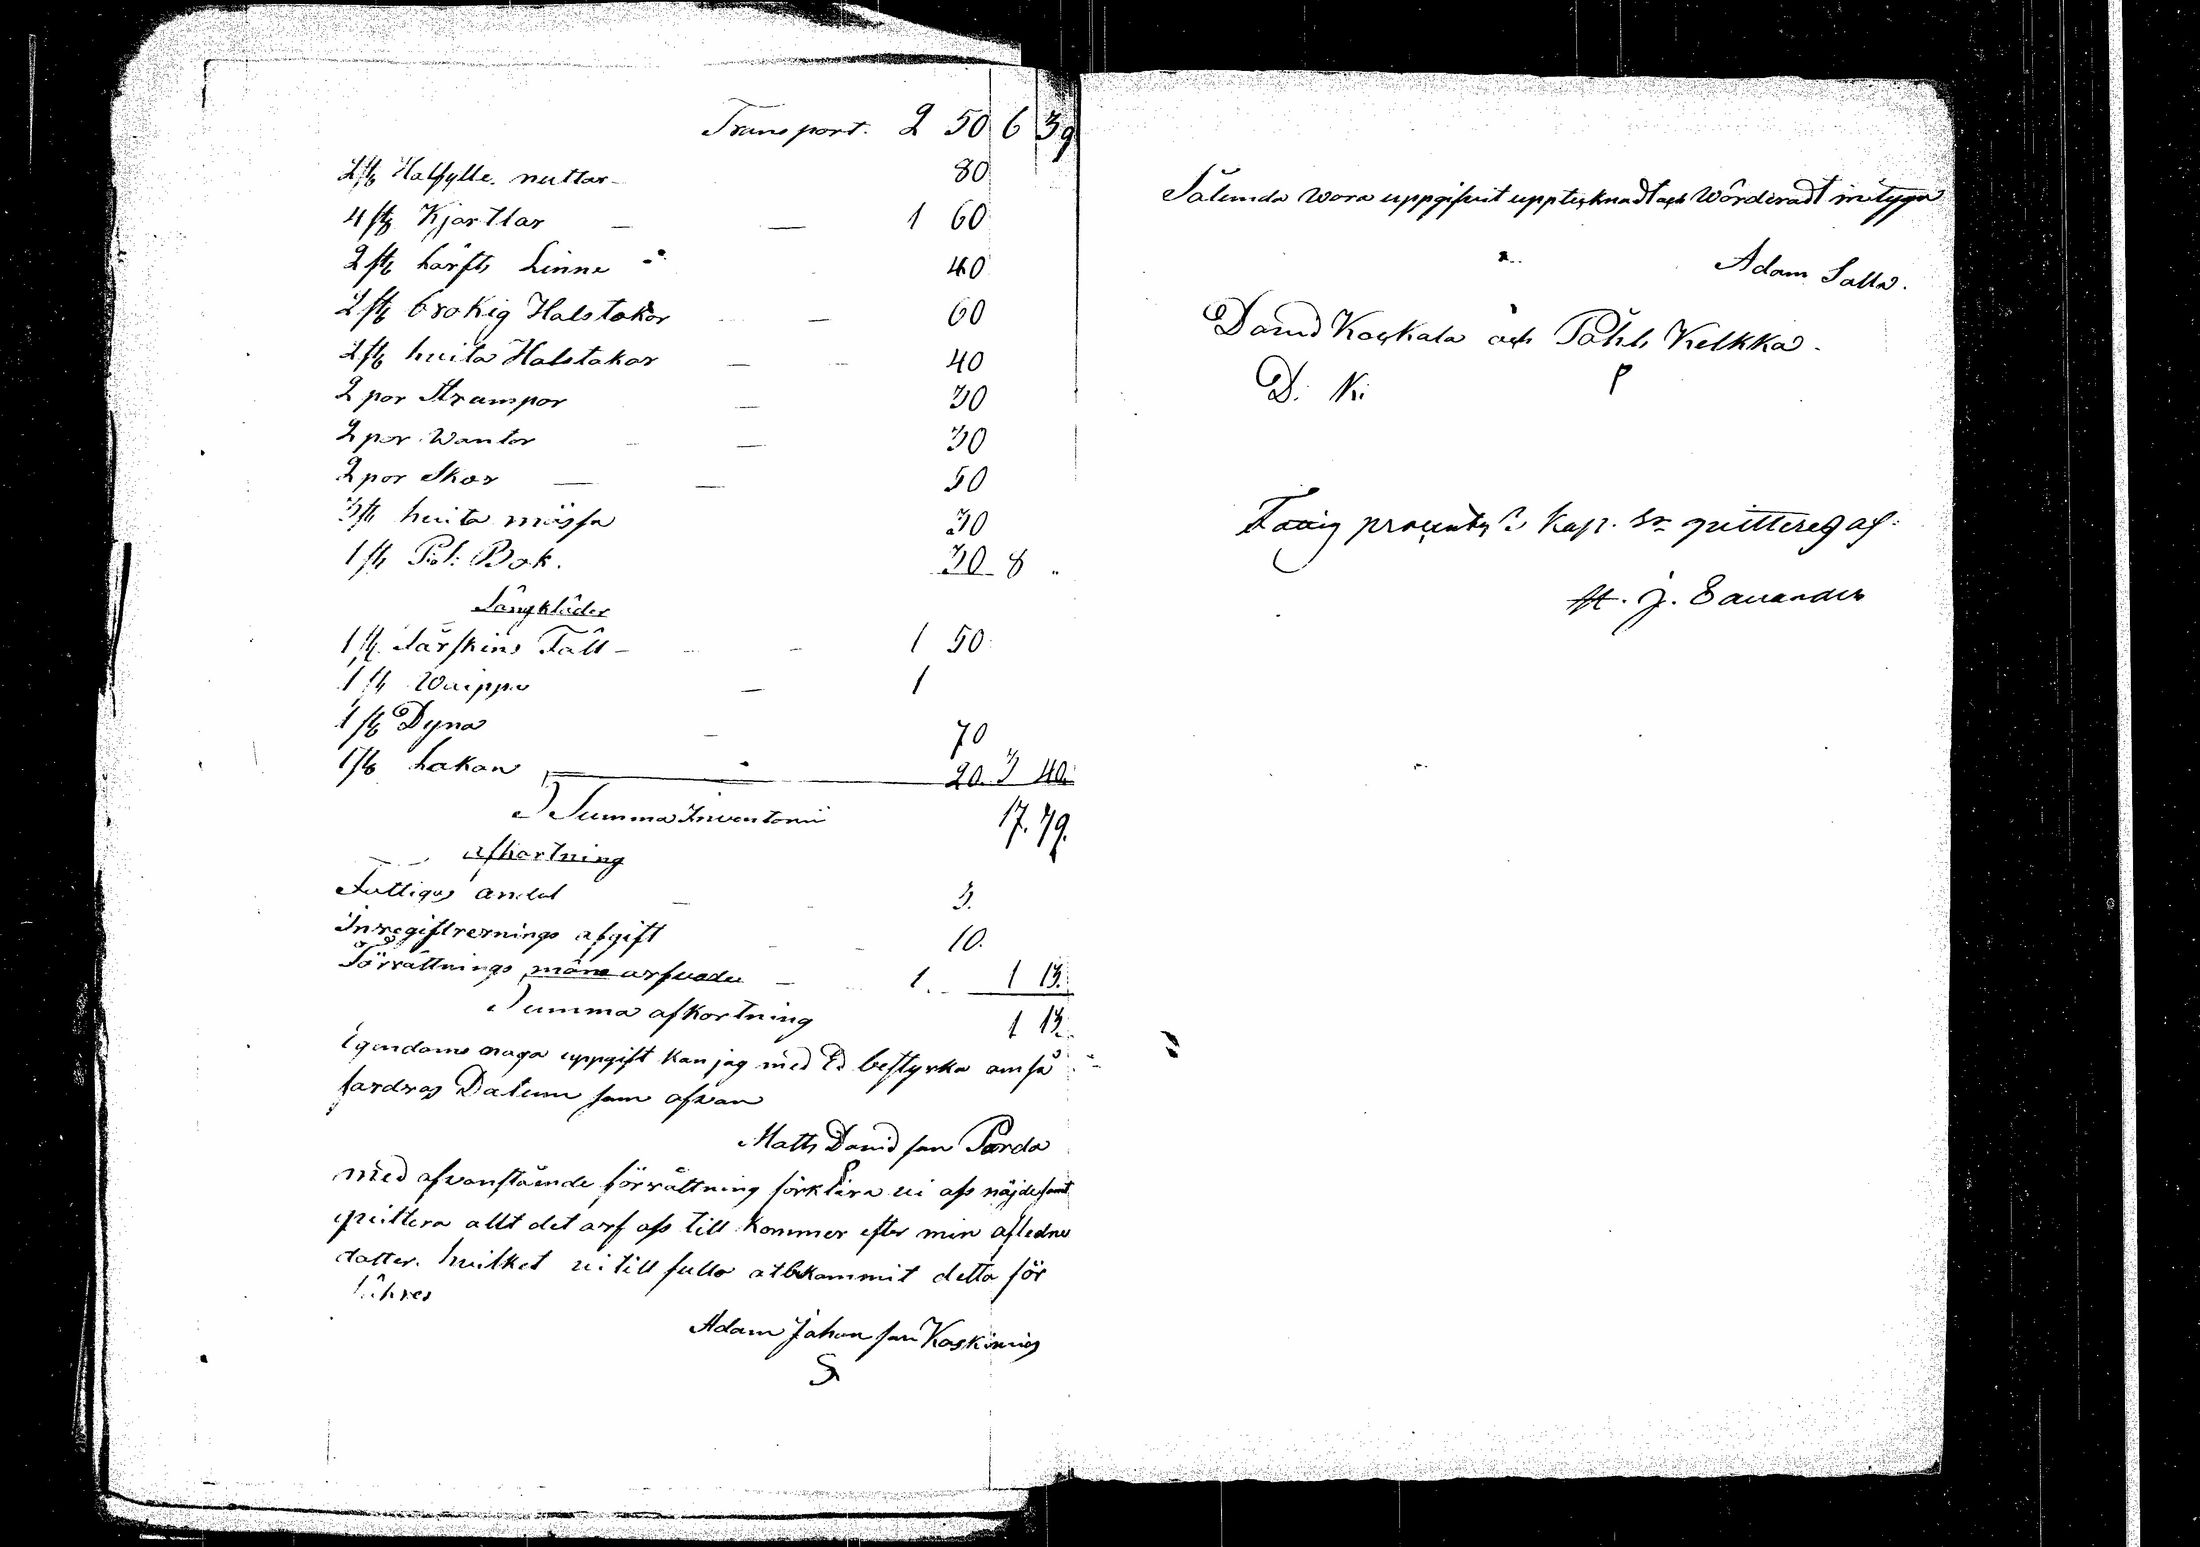 Transport. 2 50 6 39
2 st Halfylle. nuttar 80
4 st Kjortlar 1 60
2 st lärfts Linne 40
2 st brokig Halstokar 60
2 st huita Halstokar 40
2 por Strumpor 30
2 por Wantor 30
2 por Skor 50
3 st huita mössa 30
1 st Ps: Bok. 30 8 "
Sängkläder
1 st Fårskins Fäll 1 50
1 st Waippa 1
1 st Dyna 70
1 st Lakan 20. 3 40.
Summa Inventorii 17. 79.
afkortning
Fattigas andel 3.
Inregistrernings afgift 10.
Förrättnings mäns arfvode 1. 1 13.
Summa afkortning 1 13.
Egendoms noga uppgift kan jag med Ed bestyrka om så
fordras Datum som ofvan
Matts David son Porda
med ofvanstående förrättning förklara vi oss nöjde samt
quittera allt det arf oss till kommer efter min afledne
dotter. huilket vi till fullo atbekommit detta för
Adam Johan son Koskimies
Sålunda wara uppgifvit upptecknadt och Wärderadt intyga
Adam Salla.
David Koskala och Påhl Kelkka.
D. K. P
Fattig procenten 3 Kop. Sr quitteras af:
A. J. Savander